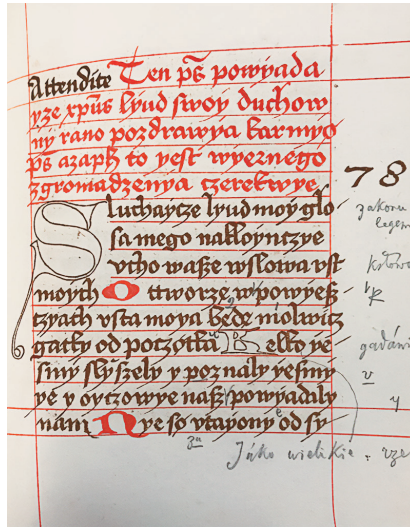 Attendite Ten ps̃ powyada
yze xpũs lyud swoy duchow
ny rano pozdrawya karmyo
ps̃ azaph to yest wyernego
zgromadzenya czerekwye
78
Sluchaycze lyud moy glo
sa mego nakloynczye
vcho wasze wslowa vst
moych O ttworzę w powyesz
czyach vsta moya będę
gatky od poczotka elko ye
smy slyszely y poznaly yesmy
ye y oyczowye naszy powyadaly
nam Nye so vtayony od sy
zakonu
legem
gadani
v
y
za
Jáko wielikie